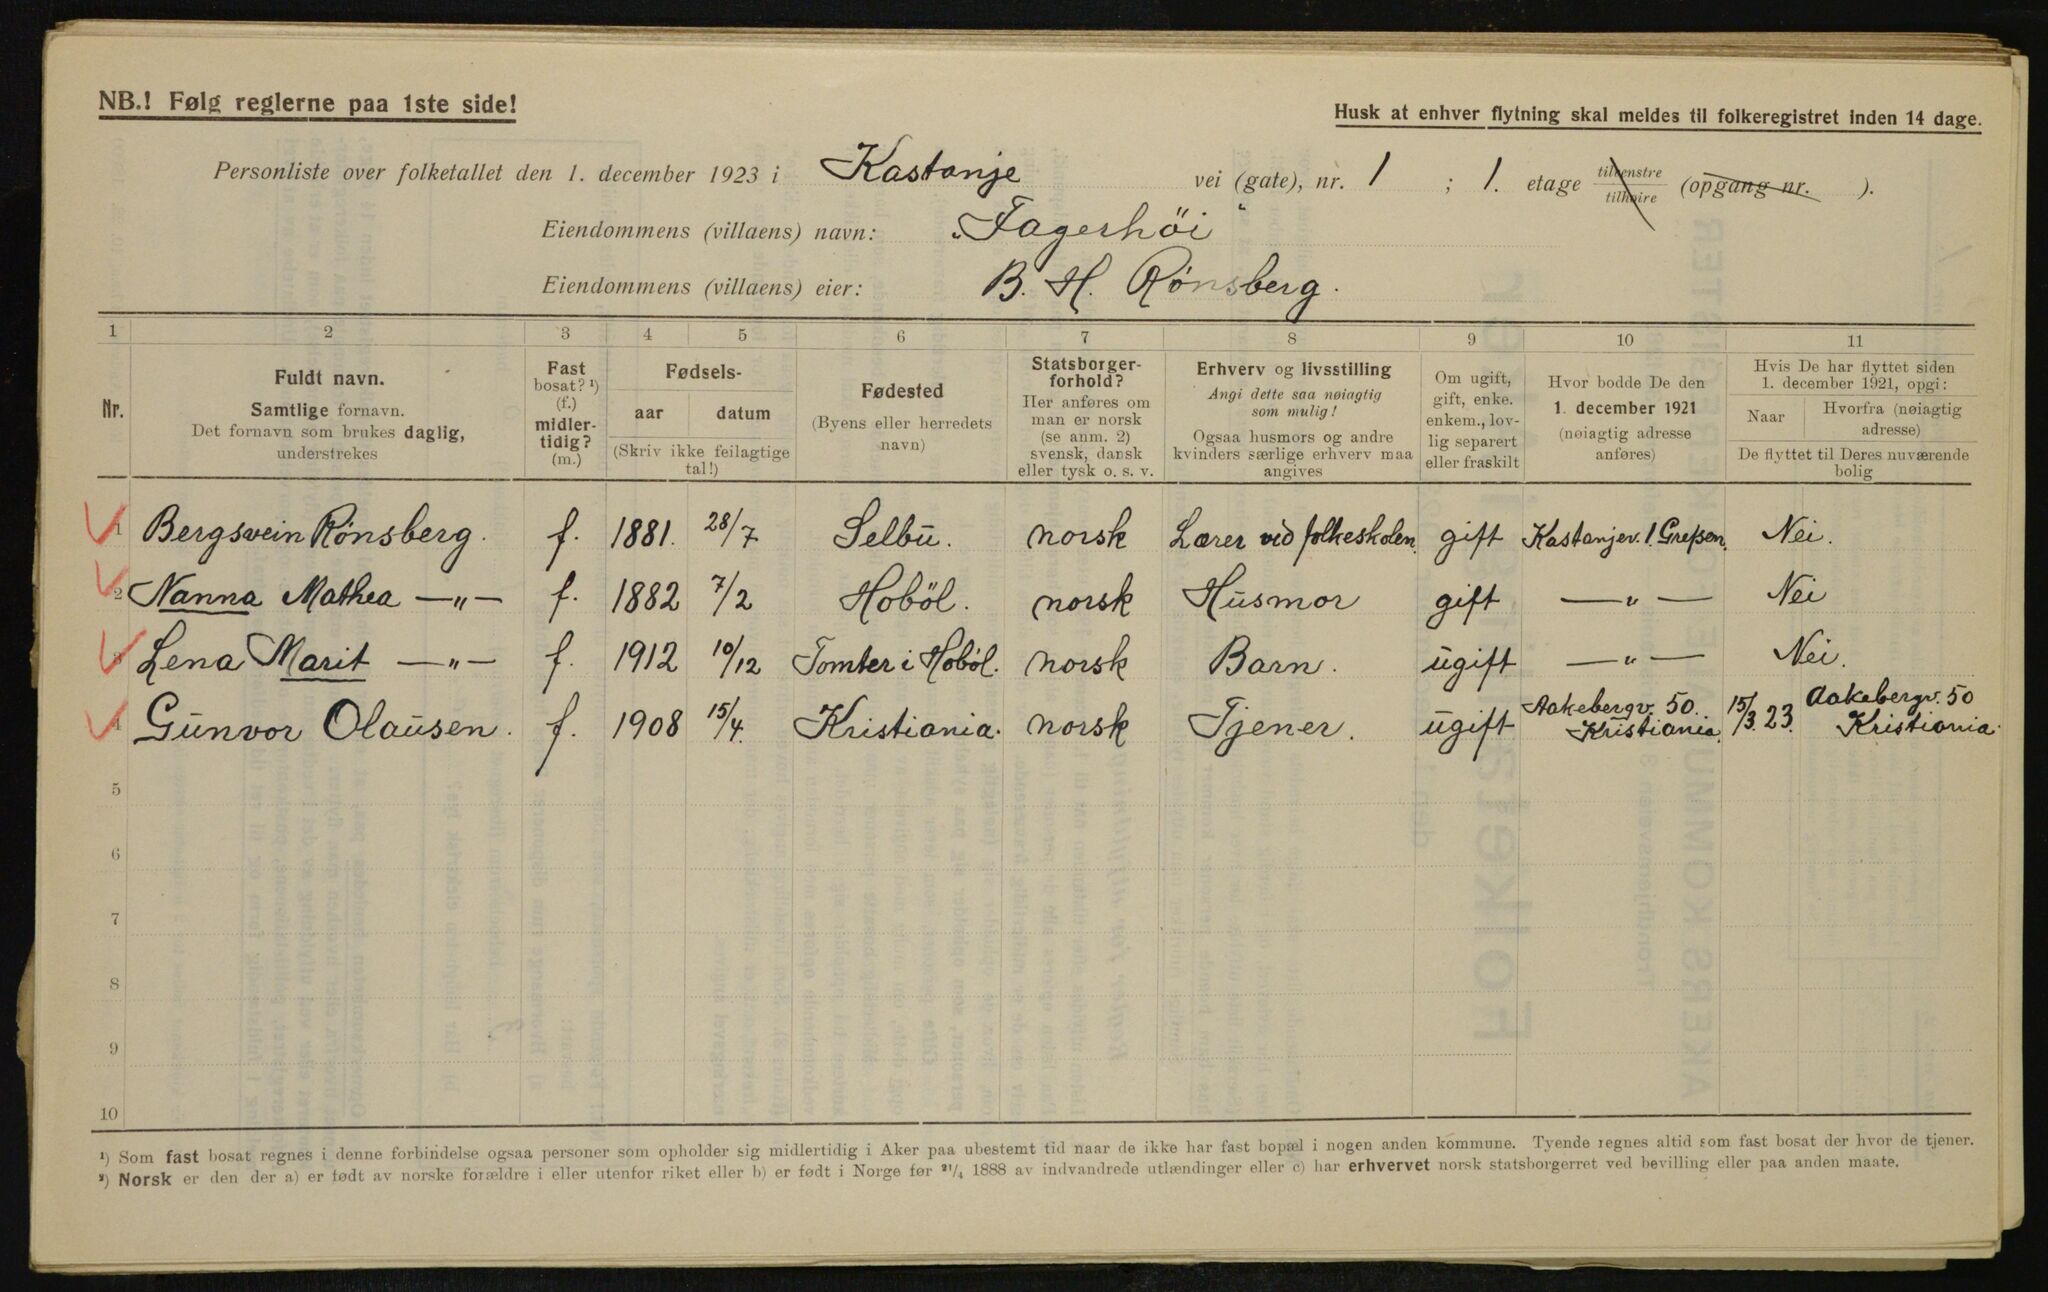 NB.! Følg reglerne paa 1ste side!
Husk at enhver flytning skal meldes til folkeregistret inden 14 dage.
Personliste over folketallet den 1. december 1923 i Kastanje vei (gate), nr. 1 ; 1. etage tilvenstre tilhøire (opgang nr. ).
Eiendommens (villaens) navn: „Fagerhöi"
Eiendommens (villaens) eier: B. H. Rønsberg.
1 2 3 4 5 6 7 8 9 10 11
Nr.
Fuldt navn.
Samtlige fornavn.
Det fornavn som brukes daglig,
understrekes
Fast
bosat? ¹)
(f.)
midler-
tidig?
(m.)
Fødsels-
aar datum
(Skriv ikke feilagtige
tal!)
Fødested
(Byens eller herredets
navn)
Statsborger-
forhold?
Her anføres om
man er norsk
(se anm. 2)
svensk, dansk
eller tysk o. s. v.
Erhverv og livsstilling
Angi dette saa nøiagtig
som mulig!
Ogsaa husmors og andre
kvinders særlige erhverv maa
angives
Om ugift,
gift, enke.
enkem., lov-
lig separert
eller fraskilt
Hvor bodde De den
1. december 1921
(nøiagtig adresse
anføres)
Hvis De har flyttet siden
1. december 1921, opgi:
Naar
Hvorfra (nøiagtig
adresse)
De flyttet til Deres nuværende
bolig
1 Bergsvein Rønsberg. f. 1881. 28/7 Selbu. norsk Lærer ved folkeskolen. gift Kastanjev. 1. Grefsen. Nei.
2 Nanna Mathea —„— f. 1882 7/2 Hoböl. norsk Husmor gift —„— Nei
3 Lena Marit —„— f. 1912 10/12 Tomter i Hoböl. norsk Barn. ugift —„— Nei.
4 Gunvor Olausen. f. 1908 15/4. Kristiania. norsk Tjener. ugift Aakebergv. 50. Kristiania. 15/3. 23. Aakebergv. 50 Kristiania.
5
6
7
8
9
10
¹) Som fast bosat regnes i denne forbindelse ogsaa personer som opholder sig midlertidig i Aker paa ubestemt tid naar de ikke har fast bopæl i nogen anden kommune. Tyende regnes altid som fast bosat der hvor de tjener.
²) Norsk er den der a) er født av norske forældre i eller utenfor riket eller b) er født i Norge før 21/4 1888 av indvandrede utlændinger eller c) har erhvervet norsk statsborgerret ved bevilling eller paa anden maate.